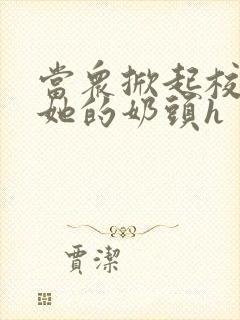 當眾掀起校
她的奶頭h
賈潔